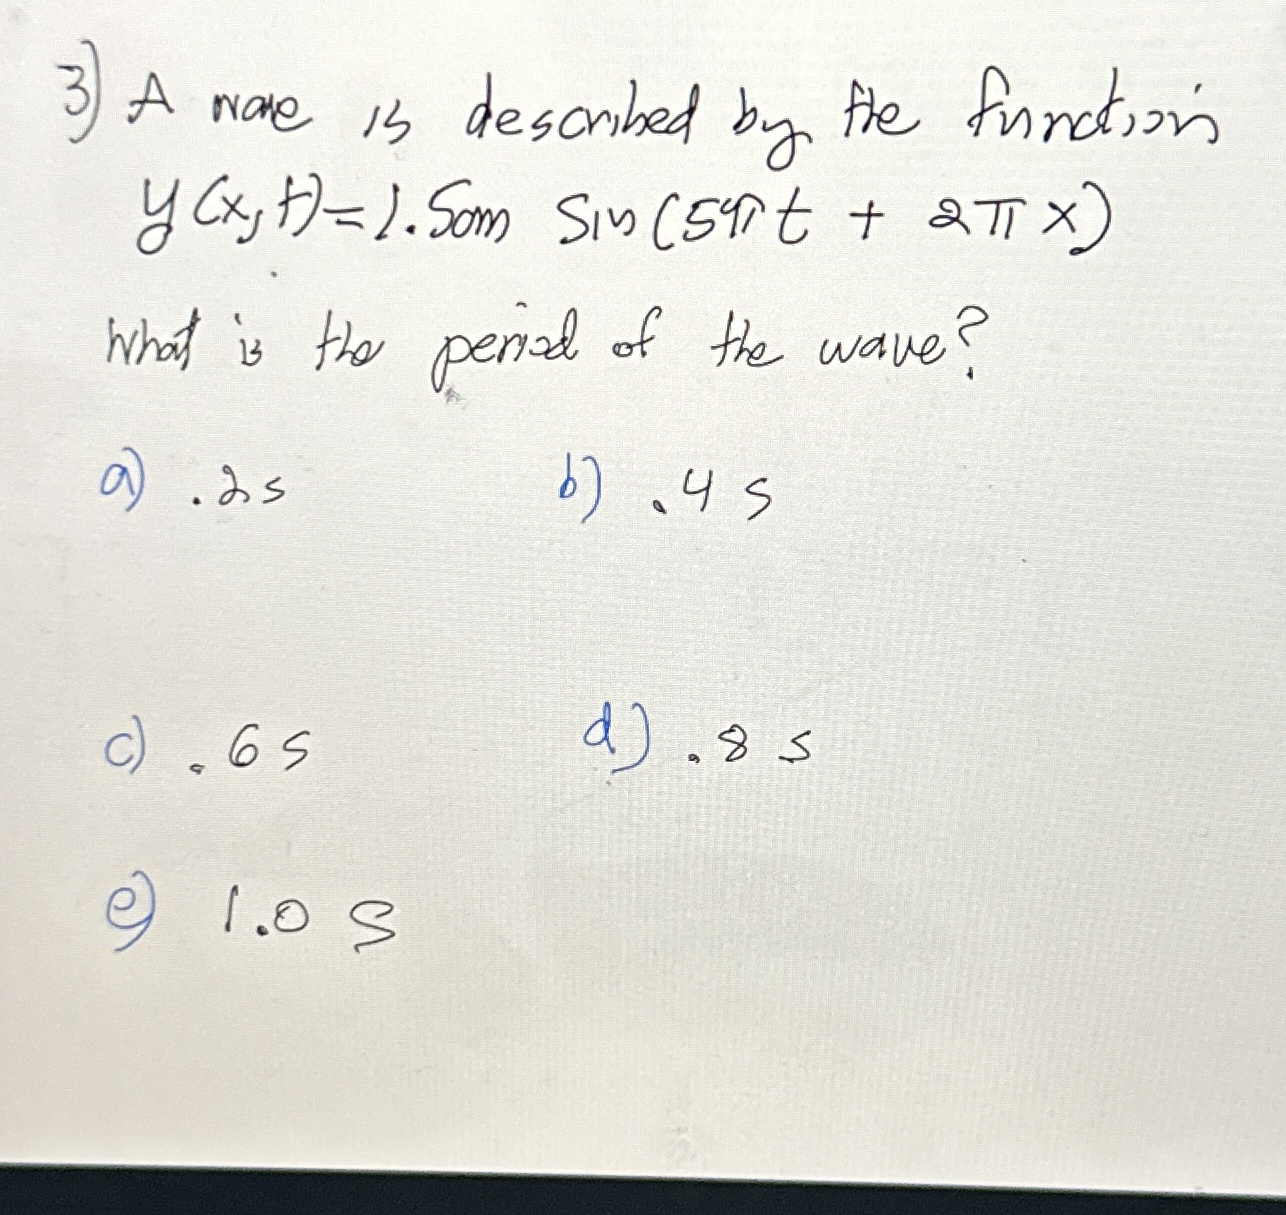 3) A wave is described by the function
y(x,t)=1.5cm Sin(5πt + 2πx)
What is the period of the wave?
a) .2s b) .4 s
c) .6 s d) .8 s
e) 1.0 s